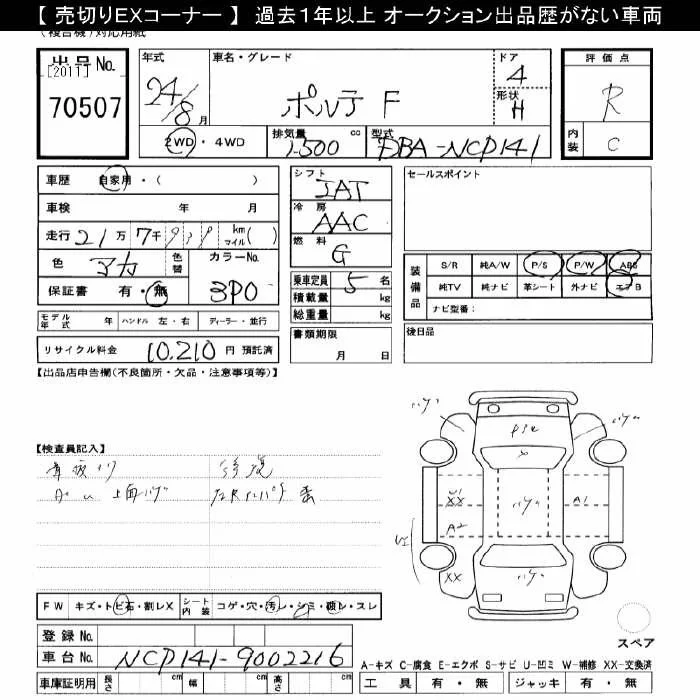 【 売切りEXコーナー 】 過去1年以上 オークション出品歴がない車両
(複合機)対応用紙
出品 No.
[2011]
70507
年式
24/8月
車名・グレード
ポルテ F
ドア
4
形状
H
2WD・4WD
排気量 1500 cc
型式 DBA-NCP141
評価点
R
内装
C
車歴 自家用・( )
車検 年 月
走行 21万7千 km マイル( )
色 アカ
色替
カラーNo.
3P0
保証書 有・無
モデル年式 年 ハンドル 左・右 ディーラー・並行
リサイクル料金 10,210 円 預託済
シフト
IAT
冷房
AAC
燃料
G
乗車定員 5 名
積載量 kg
総重量 kg
書類期限
月 日
セールスポイント
装備品
S/R 純A/W P/S P/W ABS
純TV 純ナビ 革シート 外ナビ エアB
ナビ型番:
後日品
【出品店申告欄(不良箇所・欠品・注意事項等)】
【検査員記入】
修復
上面ハゲ
ハゲ
ハゲ
ハゲ
XX
A1
A2
XX
ハゲ
FW キズ・トビ石・割レX
シート内装 コゲ・穴・汚レ・シミ・破レ・スレ
登録 No.
車台 No. NCP141-9002216
車庫証明用 長さ cm 幅 cm 高さ cm
スペア
A-キズ C-腐食 E-エクボ S-サビ U-凹ミ W-補修 XX-交換済
工具 有・無 ジャッキ 有・無